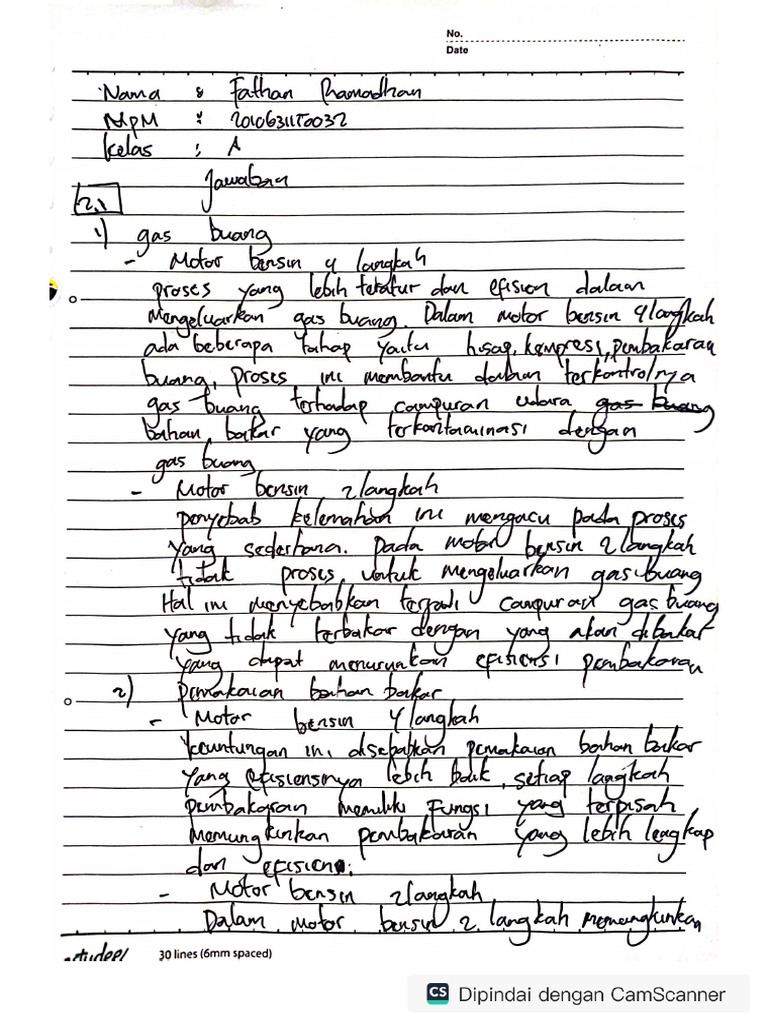 No.
Date
Nama : Fathan Rhamadhan
NPM : 2010631150032
Kelas : A
Jawaban
2.1
1) gas buang
- Motor bensin 4 langkah
proses yang lebih teratur dan efisien dalam
Mengeluarkan gas buang. Dalam motor bensin 4 langkah
ada beberapa tahap yaitu hisap, kompresi, pembakaran
buang, proses ini membantu dalam terkontrolnya
gas buang terhadap campuran udara gas buang
bahan bakar yang terkontaminasi dengan
gas buang
- Motor bensin 2 langkah
penyebab kelemahan ini mengacu pada proses
yang sederhana. pada motor bensin 2 langkah
tidak proses untuk mengeluarkan gas buang
Hal ini menyebabkan terjadi campuran gas buang
yang tidak terbakar dengan yang akan dibakar
yang dapat menurunkan efisiensi pembakaran
2) pemakaian bahan bakar
- Motor bensin 4 langkah
keuntungan ini disebabkan pemakaian bahan bakar
yang efisiensinya lebih baik, setiap langkah
pembakaran memiliki fungsi yang terpisah
Memungkinkan pembakaran yang lebih lengkap
dan efisien.
- Motor bensin 2 langkah
Dalam motor bensin 2 langkah memungkinkan
30 lines (6mm spaced)
CS Dipindai dengan CamScanner